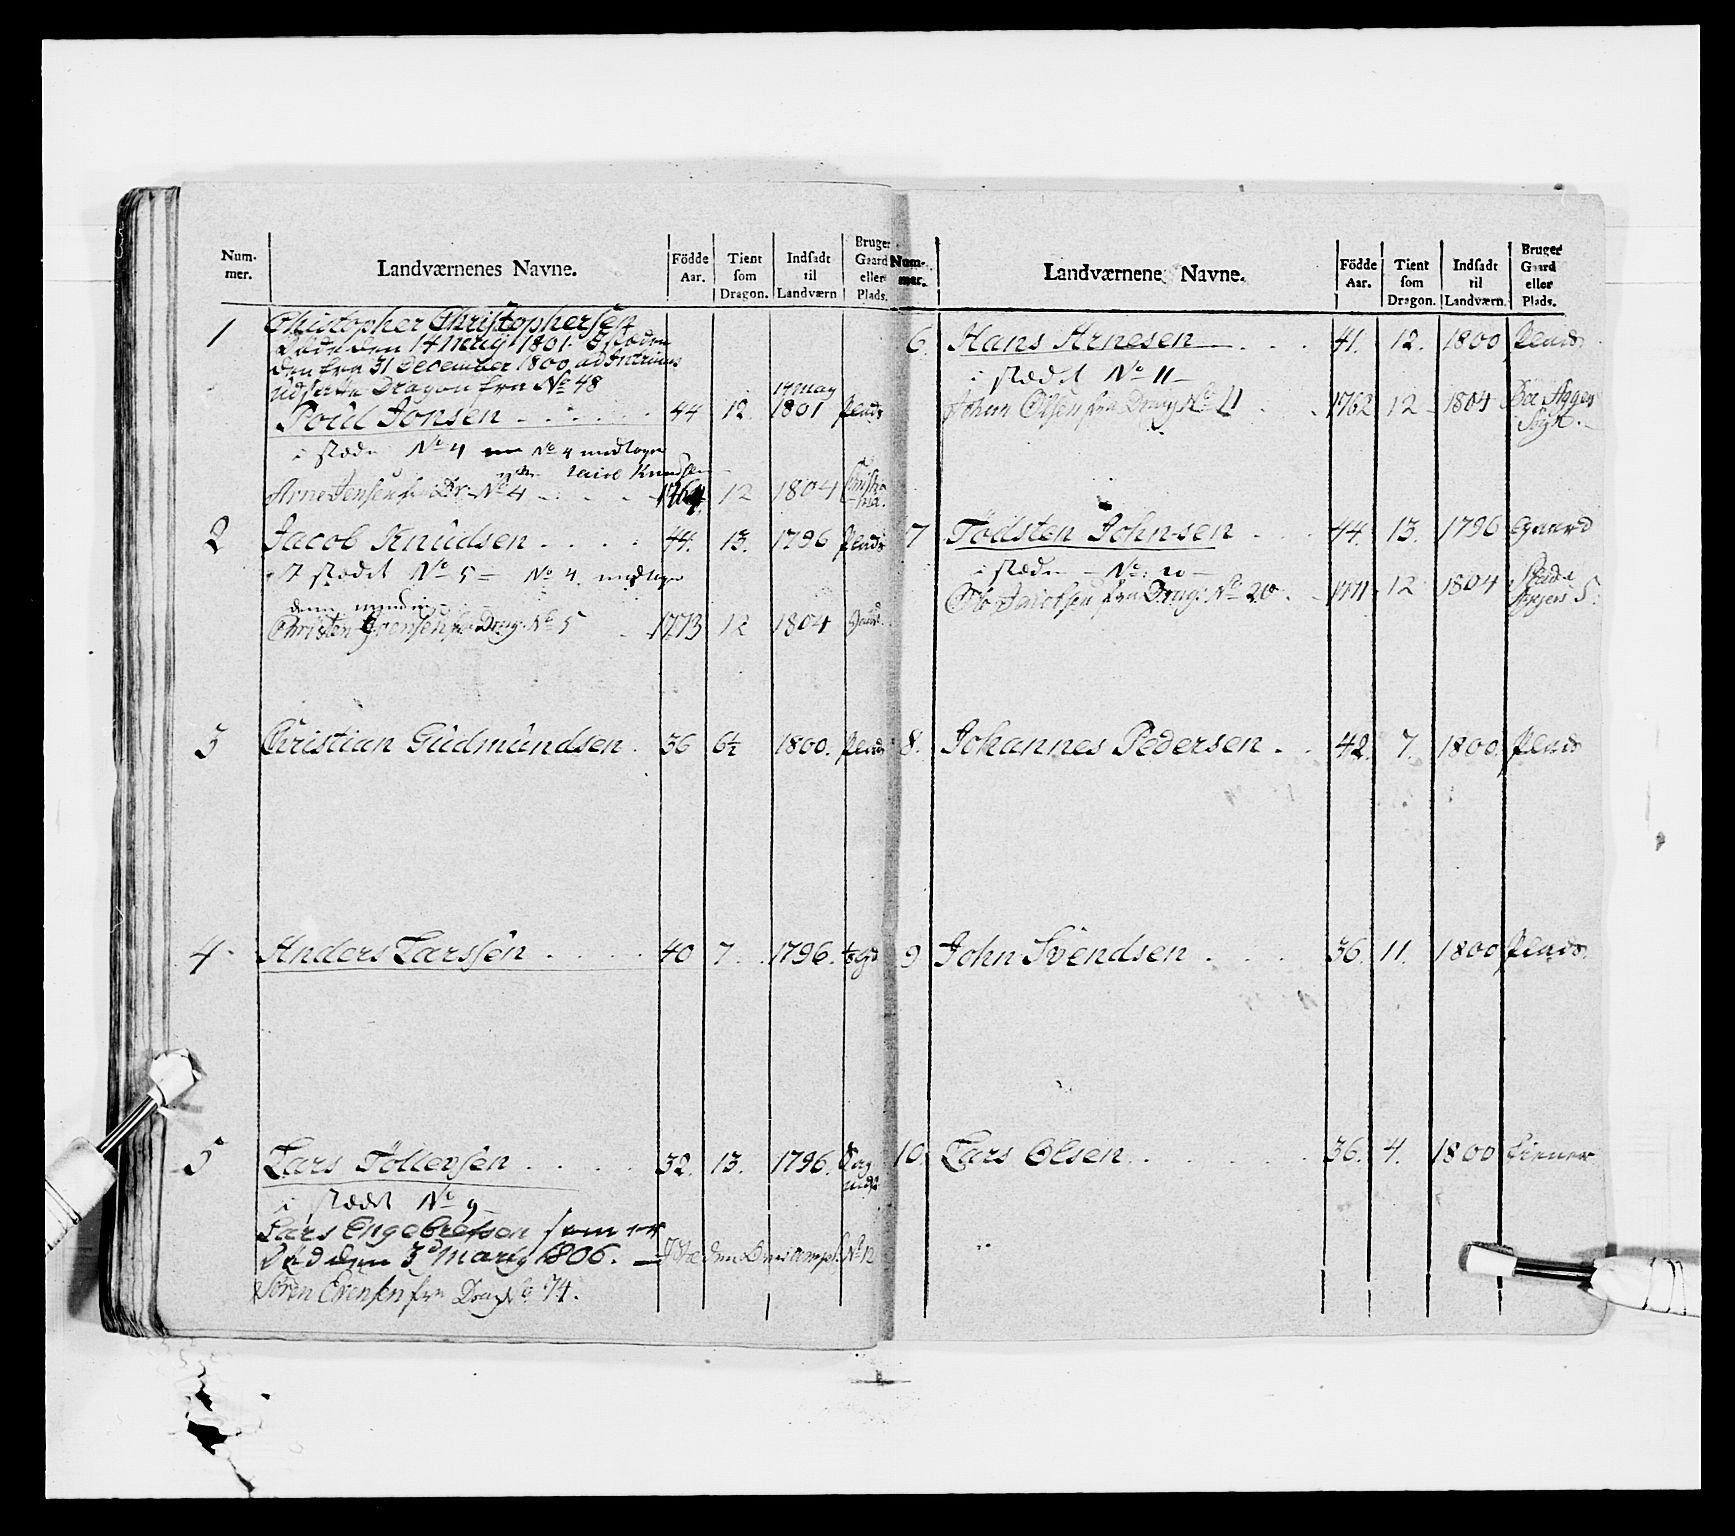 Num-
mer.
Landværnenes Navne.
Födde
Aar.
Tient
som
Dragon.
Indsadt
til
Landværn
Bruger
Gaard
eller
Plads.
1 Christopher Christophersen
Döde den 14 May 1801.
den fra 31 December 1800
udsatte Dragon fra No 48
Poül Jonsen 44 12. 14 May 1801 Plads
i stæden No 4 No 4 modtager
Arne Jensen fra Dr: No 4 12 1804
2 Jacob Knüdsen 44. 13. 1796 Plads
i stædet No 5 No 4. modtager
Christen fra Drag: No 5 1773 12 1804
3 Christian Güdmündsen. 36 6½ 1800. Plads
4 Anders Larssen 40 7. 1796.
5 Lars Tollevsen 32. 13. 1796.
i stædet No 9
Lars Engebretsen som er
Död den 3d Marty 1806.
Sören Evensen fra Drag No 74.
Num-
mer.
Landværnenes Navne.
Födde
Aar.
Tient
som
Dragon.
Indsadt
til
Landværn.
Bruger
Gaard
eller
Plads.
6. Hans Arnesen 41. 12. 1800 Plads
i stædet No 11
Johan Olsen fra Drag No 11 1762 12 1804
7 Todsten Johnsen 44. 13. 1796 Gaard
i stæden No: 20
Ole Jacobsen fra Drag: No 20. 1771 12 1804
8. Johannes Pedersen 42. 7. 1800. Plads
9 John Svendsen 36. 11. 1800 Plads.
10. Lars Olsen 36. 4. 1800 Tiener